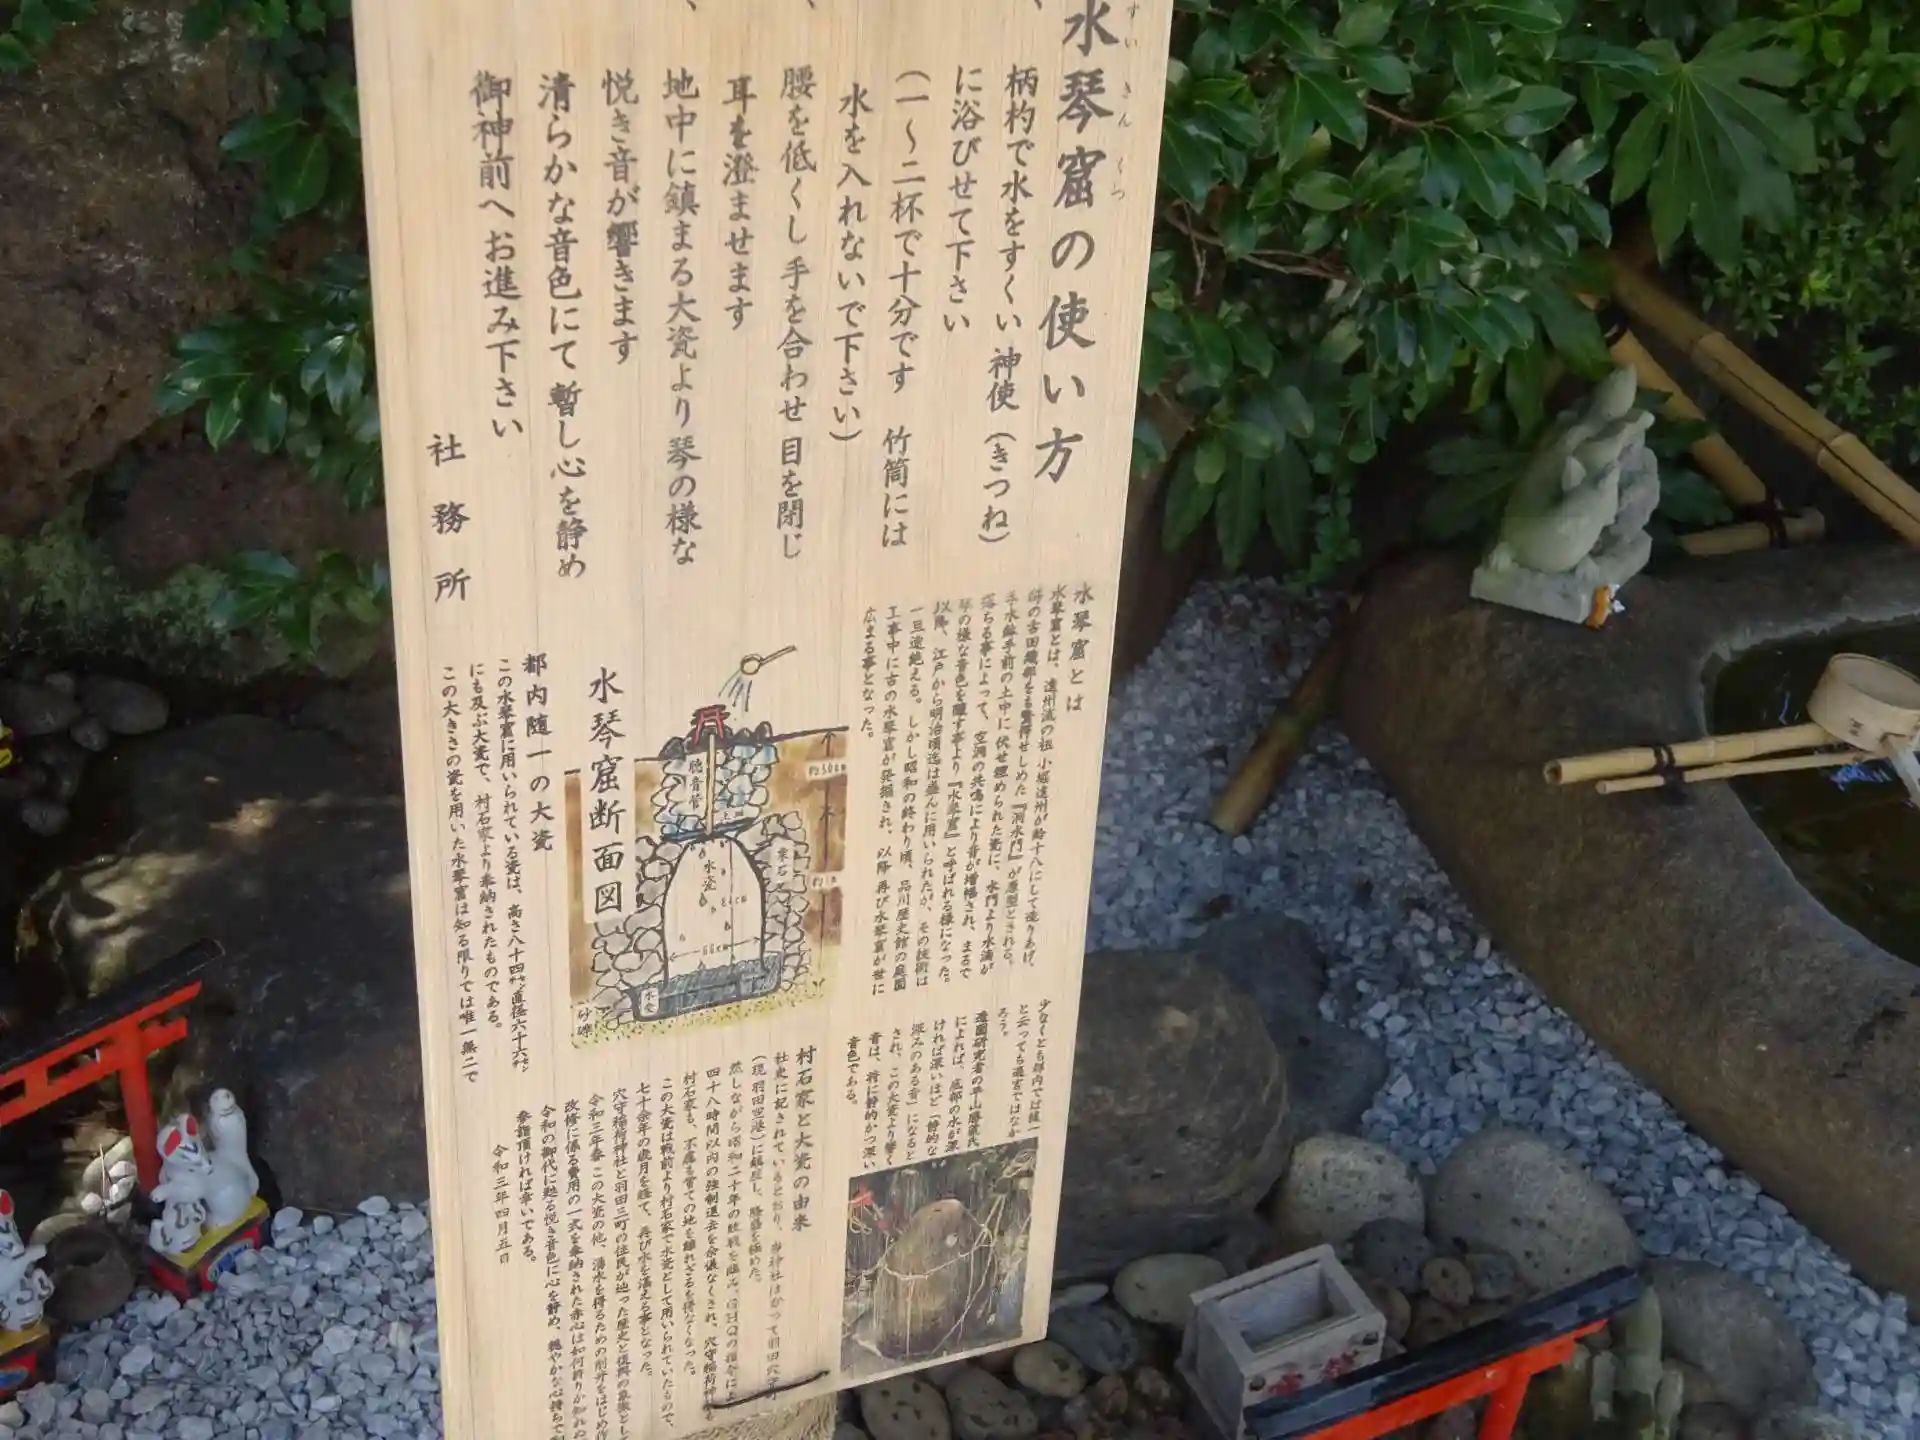 水琴窟の使い方
すい きん くつ
、柄杓で水をすくい 神使（きつね）
に浴びせて下さい
（一〜二杯で十分です 竹筒には
水を入れないで下さい）
、腰を低くし 手を合わせ 目を閉じ
耳を澄ませます
、地中に鎮まる大瓷より琴の様な
悦き音が響きます
清らかな音色にて 暫し心を静め
御神前へお進み下さい
社務所
水琴窟とは
水琴窟とは、遠州流の祖 小堀遠州が齢十八にして造りあげ、
師の古田織部をも驚愕せしめた『洞水門』が原型とされる。
手水鉢手前の土中に伏せ埋められた瓷に、水門より水滴が
落ちる事によって、空洞の共鳴により音が増幅され、まるで
琴の様な音色を醸す事より『水琴窟』と呼ばれる様になった。
以降、江戸から明治頃迄は盛んに用いられたが、その技術は
一旦途絶える。しかし昭和の終わり頃、品川歴史館の庭園
工事中に古の水琴窟が発掘され、以降 再び水琴窟が世に
広まる事となった。
水琴窟断面図
聴音管
約50cm
約1m
水瓷
栗石
84cm
66cm
水受
砂礫
都内随一の大瓷
この水琴窟に用いられている瓷は、高さ八十四㌢、直径六十六㌢
にも及ぶ大瓷で、村石家より奉納されたものである。
この大きさの瓷を用いた水琴窟は知る限りでは唯一無二で
少なくとも都内では随一
と云っても過言ではなか
ろう。
造園研究者の平山勝蔵氏
によれば、底部の水が深
ければ深いほど「静的な
深みのある音」になると
され、この大瓷より響く
音は、将に静的かつ深い
音色である。
村石家と大瓷の由来
社史に記されているとおり、当神社はかつて羽田穴守町
（現 羽田空港）に鎮座し、隆盛を極めた。
然しながら昭和二十年の敗戦を臨み、GHQの指令によ
四十八時間以内の強制退去を余儀なくされ、穴守稲荷神社も
村石家も、不本意も嘗ての地を離れざるを得なくなった。
この大瓷は戦前より村石家で水瓷として用いられていたもので、
七十余年の歳月を経て、再び水を湛える事となった。
穴守稲荷神社と羽田三町の住民が辿った歴史と復興の象徴として
令和三年春 この大瓷の他、湧水を得るための削井をはじめ作
改修に係る費用の一式を奉納された赤心は如何許りか知れぬ
令和の御代に甦る悦き音色に心を静め、穏やかな心持ちで
参詣頂ければ幸いである。
令和三年四月五日